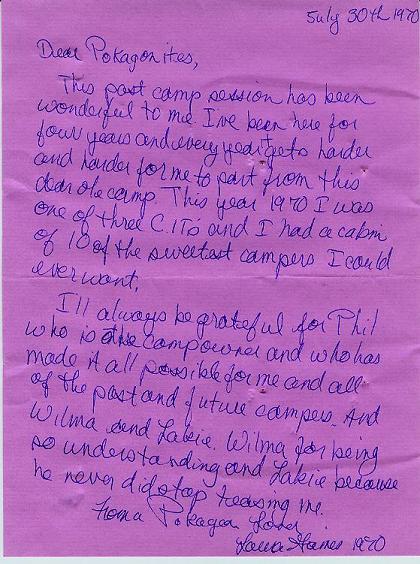 July 30th 1970
Dear Pokagonites,
This past camp session has been
wonderful to me I've been here for
four years and every year gets harder
and harder for me to part from this
dear ole camp. This year 1970 I was
one of three C.ITs and I had a cabin
of 10 of the sweetest campers I could
ever want.
I'll always be grateful for Phil
who is the campowner and who has
made it all possible for me and all
of the past and future campers. And
Wilma and Lakie. Wilma for being
so understanding and Lakie because
he never did stop teasing me.
From a Pokagon Lover
1970